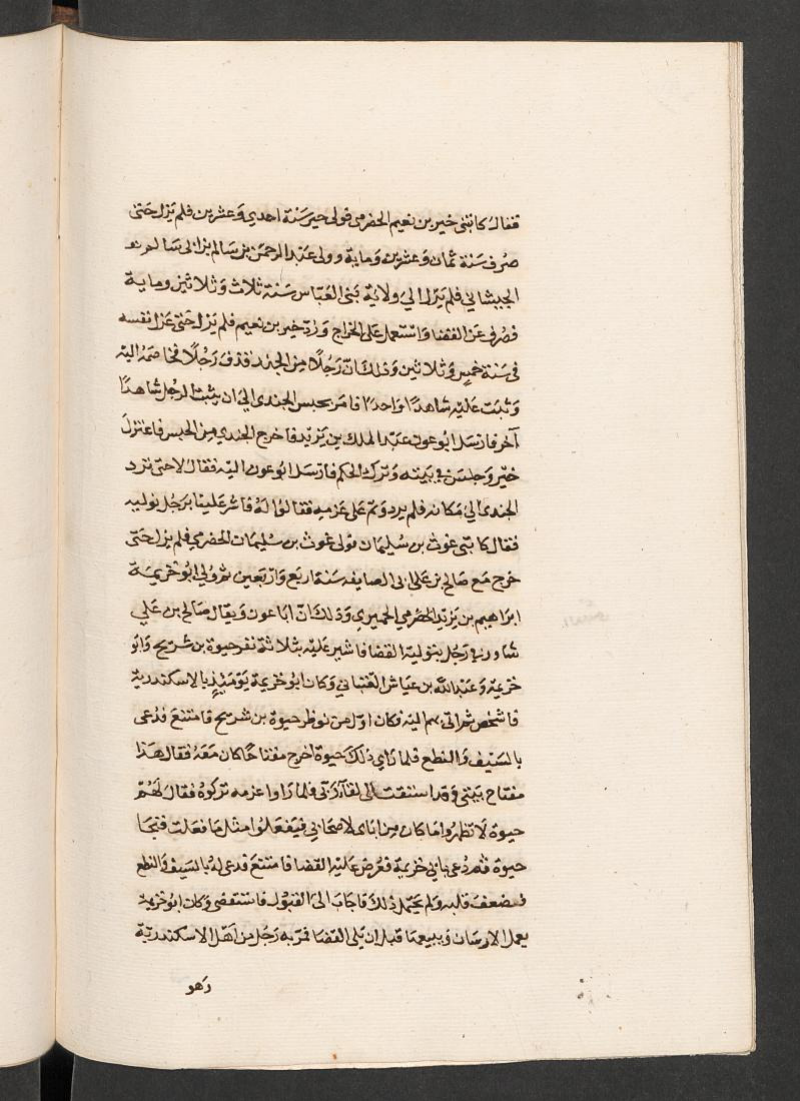 فقال كاتبنى خير بن نعيم الحضرمى فولى خير سنة احدى وعشرين فلم يزل حتى
صرف سنة ثمان وعشرين ومايه وولى عبد الرحمن بن سالم بن ابى سالم
الجيشانى فلم يزل الى ولاية بنى العباس سنة ثلاث وثلاثين ومايه
فصرف عن القضا واستعمل على الخراج ورد خير بن نعيم فلم يزل حتى عزل نفسه
فى سنة خمس وثلاثين وذلك ان رجلا من الجند قذف رجلا فخاصمه اليه
وثبت عليه شاهدا واحدا فامر بحبس الجندى الى ان يثبت الرجل شاهدا
آخر فارسل ابو عون عبد الملك بن يزيد فاخرج الجندى من الحبس فاعتزل
خير وجلس فى بيته وترك الحكم فارسل ابو عون اليه فقال لا حتى ترد
الجندى الى مكانه فلم يرد وتم على عزمه فقالوا له فاشر علينا برجل نوليه
فقال كاتبى غوث بن سليمان فولى غوث بن سليمان الحضرمى فلم يزل حتى
خرج مع صالح بن على الى الصايفه سنة اربع واربعين ثم ولى ابو خزيمة
ابراهيم بن يزيد الحضرمى الحميرى وذلك ان ابا عون ويقال صالح بن على
شاور فى رجل يتوليه القضا فاشير عليه بثلاثة نفر حيوة بن شريح وابو
خزيمه وعبد الله بن عياش الغتبانى وكان ابو خزيمة يومئذ بالاسكندرية
فاشخص ثم اتى بهم اليه فكان اول من نوظر حيوة بن شريح فامتنع فدعى
بالسيف والنطع فلما راى ذلك حيوة اخرج مفتاحا كان معه فقال هذا
مفتاح بيتى وقد اشتقت الى لقآ ربى فلما راوا عزمه تركوه فقال لهم
حيوة لا تظهروا ما كان من اباى لاصحابى فيفعلوا مثل ما فعلت فنجا
حيوة قد دعى بابى خزيمة فعرض عليه القضا فامتنع فدعى له بالسيف والنطع
فضعف قلبه ولم يحتمل ذلك فاجاب الى القبول فاستقضى وكان ابو خزيمة
يعمل الارسان ويبيعها قبل ان يلى القضا فمر به رجل من اهل الاسكندرية
وهو